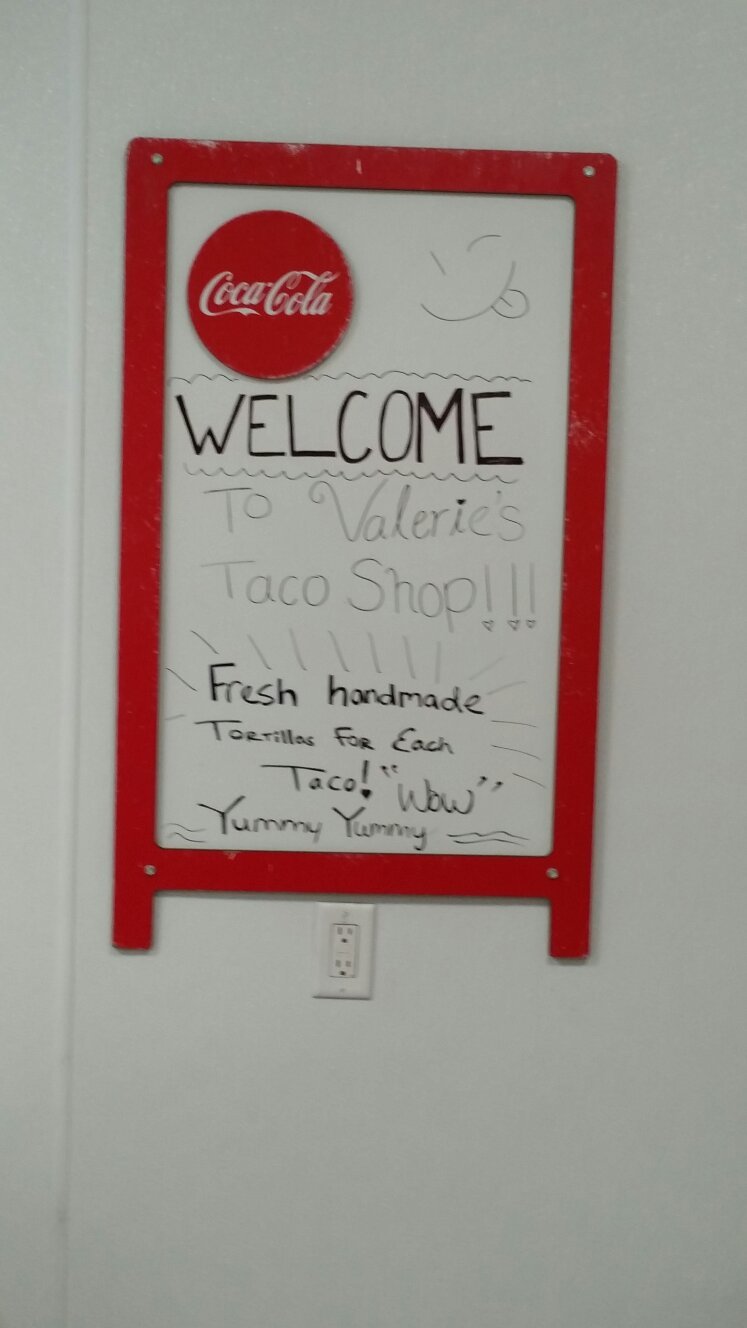 Coca-Cola
WELCOME
To Valerie's
Taco Shop!!!
Fresh handmade
Tortillas For Each
Taco! "Wow"
Yummy Yummy